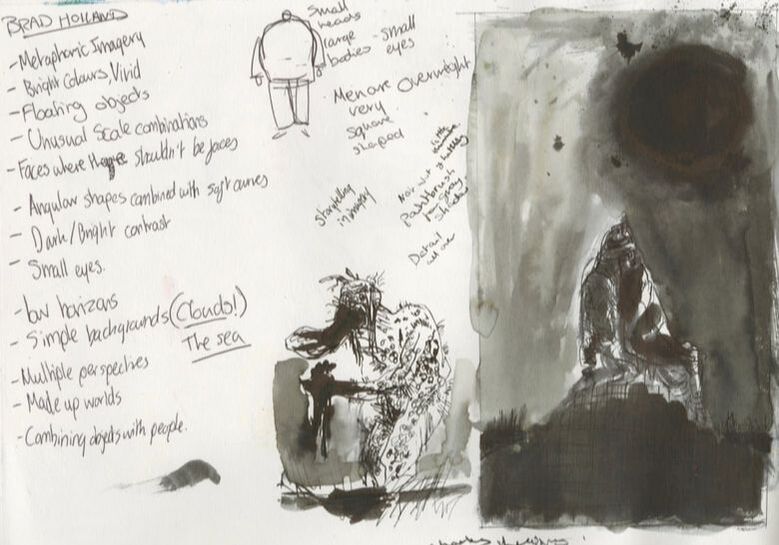 BRAD HOLLAND
- Metaphoric Imagery
- Bright Colours Vivid
- Floating objects
- Unusual Scale combinations
- Faces where there shouldn't be faces
- Angular shapes combined with soft curves
- Dark/Bright contrast
- Small eyes.
- low horizons
- Simple backgrounds (Clouds!)
The sea
- Multiple perspectives
- Made up worlds
- Combining objects with people.
small
heads
large
bodies - small
eyes
Men are Overweight
very
square
shaped
storytelling
in imagery
Paintbrush
Detail